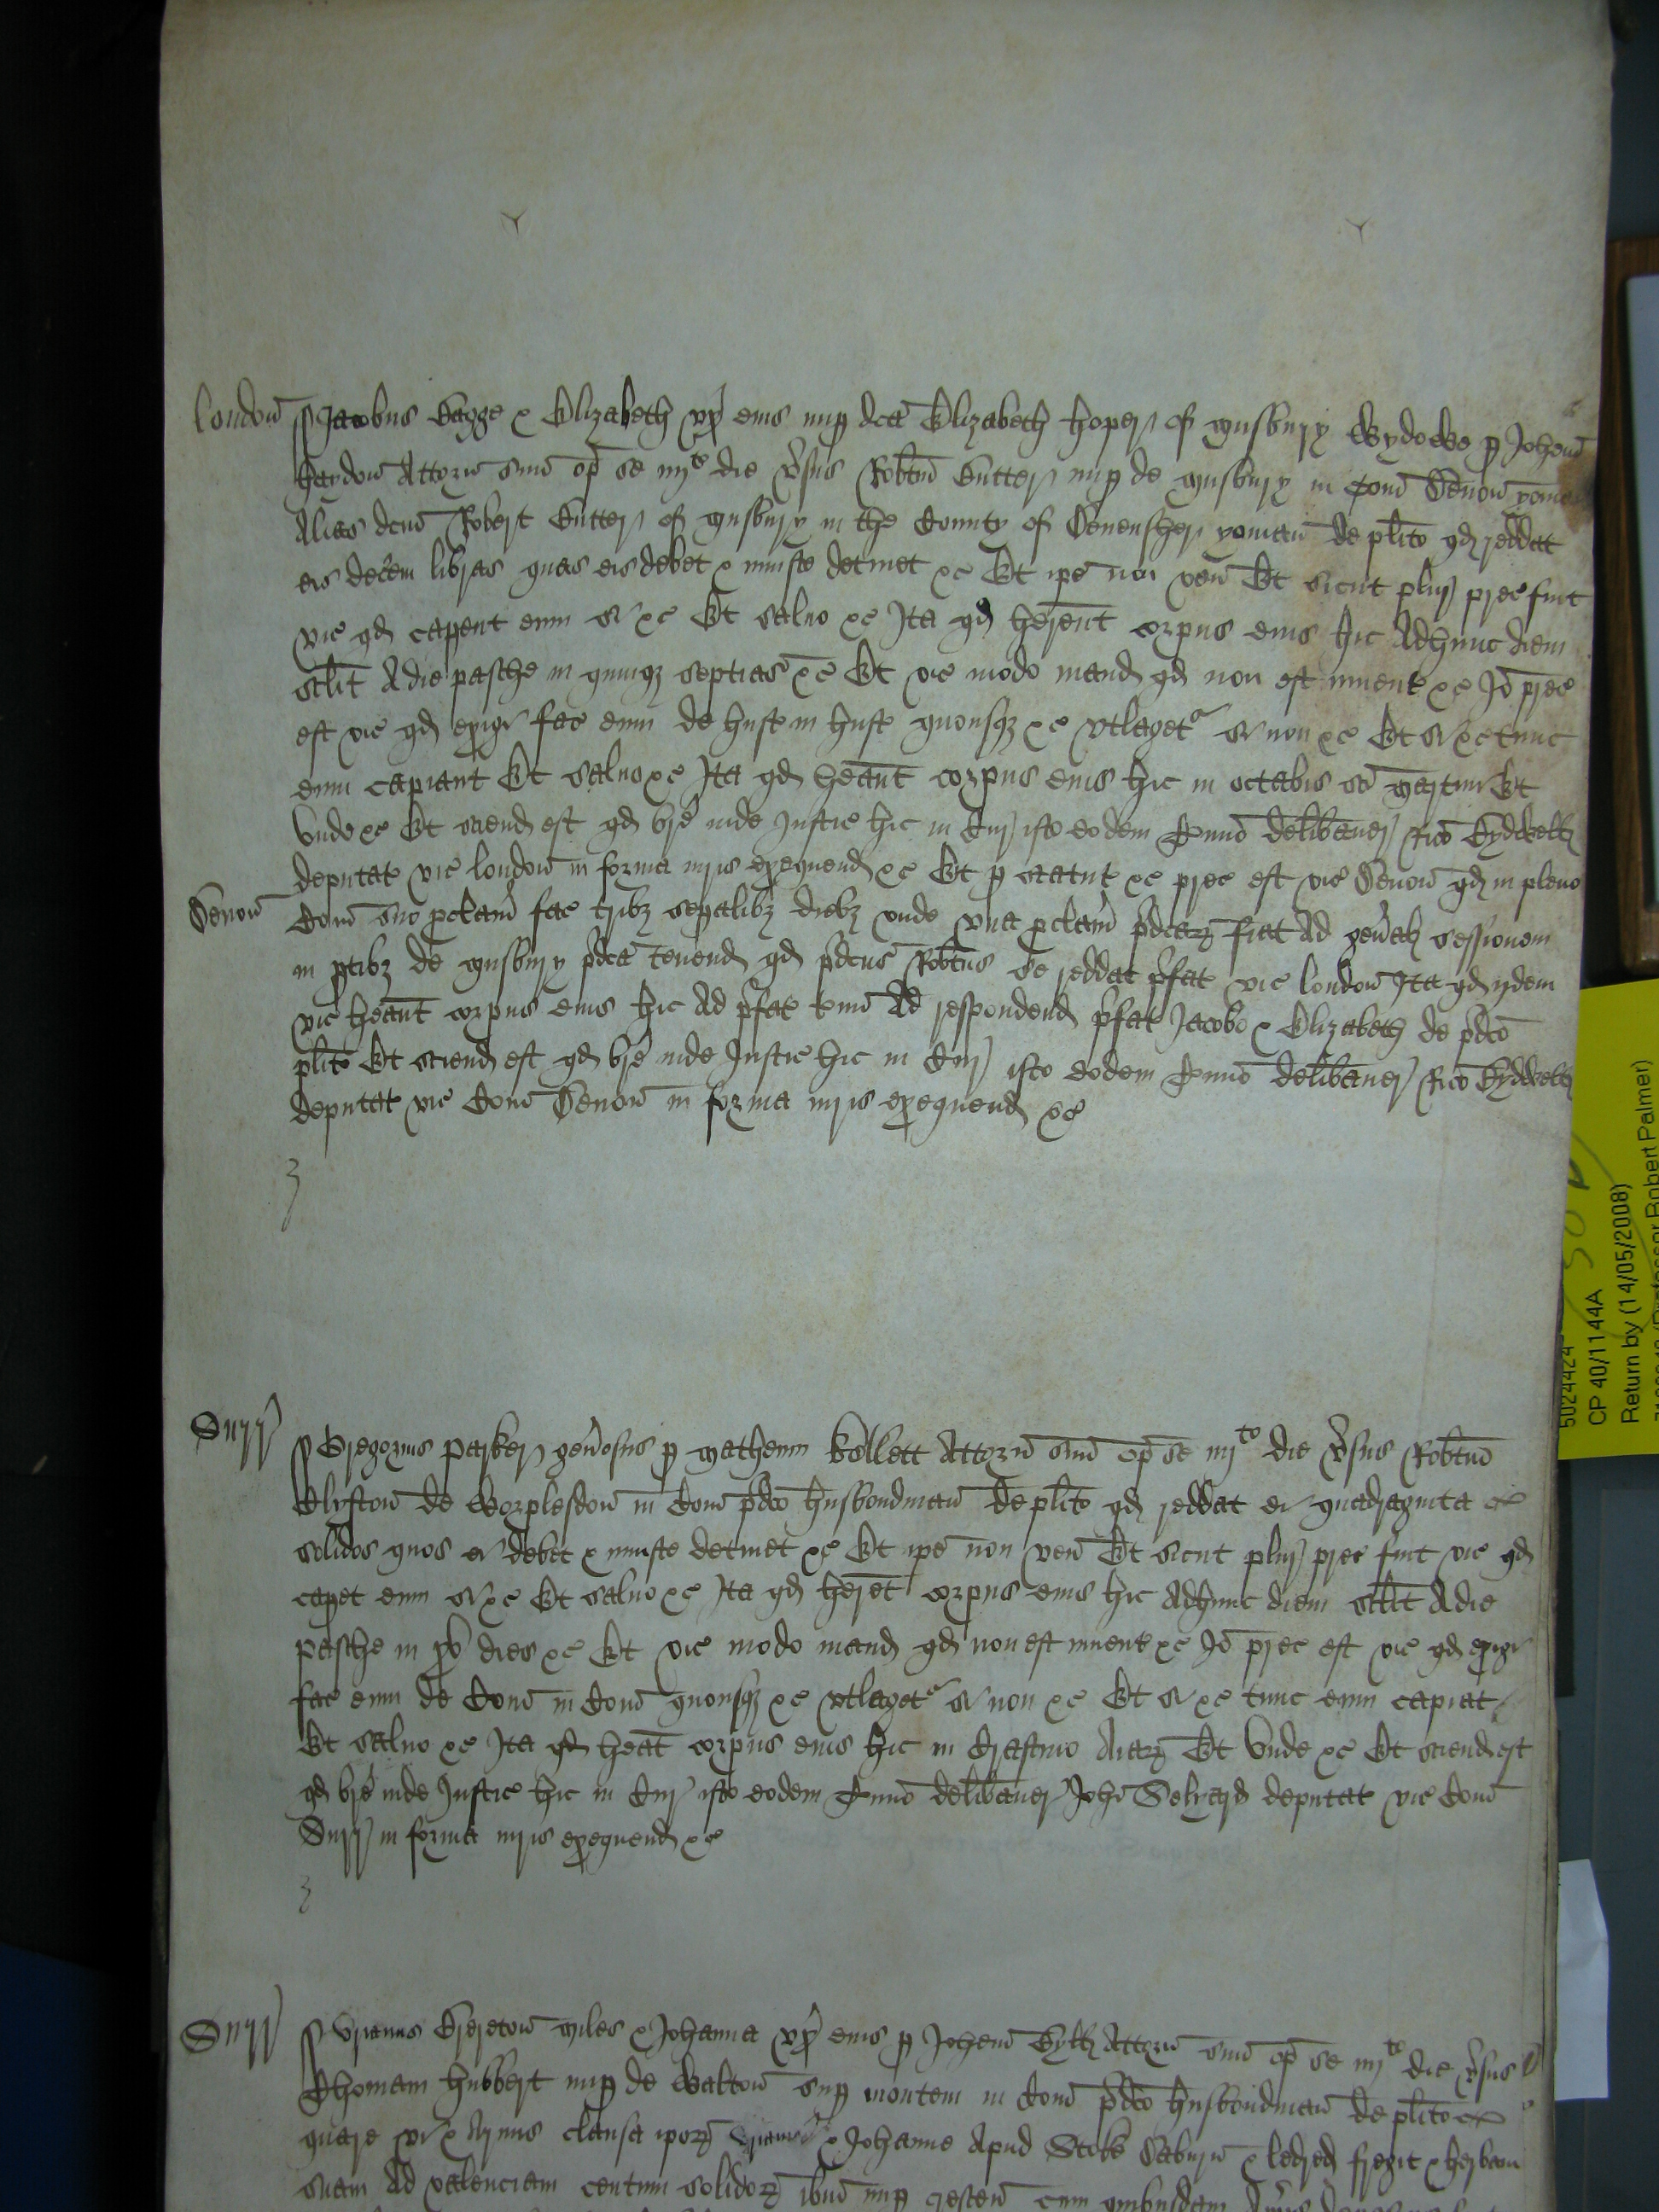 London Jacobus Gagge & Elizabeth ux eius nup dca Elizabeth Hoper of Musbury Wydowe p Johem
Haydon Attorn suu op se iiij to die vsus Robtum Cutter nup de Musbury in Com Devon yoman
Alias dcm Robert Cutter of Musbury in the County of Devensher yoman de plito qd reddat
eis decem libras quas eis debet & iniuste detinet &c Et ipe non ven Et sicut plur prec fuit
vic qd caperent eum si &c Et salvo &c Ita qd herent corpus eius hic Adhunc diem
scilt A die pasche in quinqz septias &c Et vic modo mand qd non est invent &c Io prec
est vic qd exigi fac eum de hust in hust quousqz &c utlaget si non &c Et si &c tunc
eum capiant Et salvo &c Ita qd heant corpus eius hic in octabis sci Martini Et
Unde &c Et sciend est qd bre inde Justic hic in Cur isto eodem Tmino delibaver Rico
deputat vic London in forma iuris exequend &c Et p statut &c prec est vic Devon qd in pleno
Devon Com suo pclam fac tribz sepalibz diebz unde una pclam pdcarz fiat Ad genalem sessionem
in ptibz de Musbury pdca tenend qd pdcus Robtus se reddat pfat vic London Ita qd ijdem
vic heant corpus eius hic Ad pfat tmin Ad respondend pfat Jacobo & Elizabeth de pdco
plito Et sciend est qd bre inde Justic hic in Cur isto eodem Tmino delibaver Rico
deputat vic Com Devon in forma iuris exequend &c
Surr Gregorius Parker genosus p Matheum Attorn suu op se iiij to die vsus Robtum
Clyfton de Worplesdon in Com pdco husbondman de plito qd reddat ei quadraginta
solidos quos ei debet & iniuste detinet &c Et ipe non ven Et sicut plur prec fuit vic qd
capet eum si &c Et salvo &c Ita qd heret corpus eius hic Adhunc diem scilt A die
Pasche in xv dies &c Et vic modo mand qd non est invent &c Io prec est vic qd exigi
fac eum de Com in Com quousqz &c utlaget si non &c Et si &c tunc eum capiat
Et salvo &c Ita qd heat corpus eius hic in Crastino Aiarz Et Unde &c Et sciend est
qd bre inde Justic hic in Cur isto eodem Tmino delibaver Johi deputat vic Com
Surr in forma iuris exequend &c
Surr Urianus Brereton miles & Johanna ux eius p Johem Attorn suu op se iiij to die vsus
Thomam Hubbert nup de Walton sup montem in Com pdco husbondman de plito
quare vi & Armis clausa ipor & Johanne Apud Stoke & fregit & herbam
suam Ad valenciam centum solidorz ibm nup crescen cum quibusdam
5024424
CP 40/1144A
Return by (14/05/2008)
(Professor Robert Palmer)